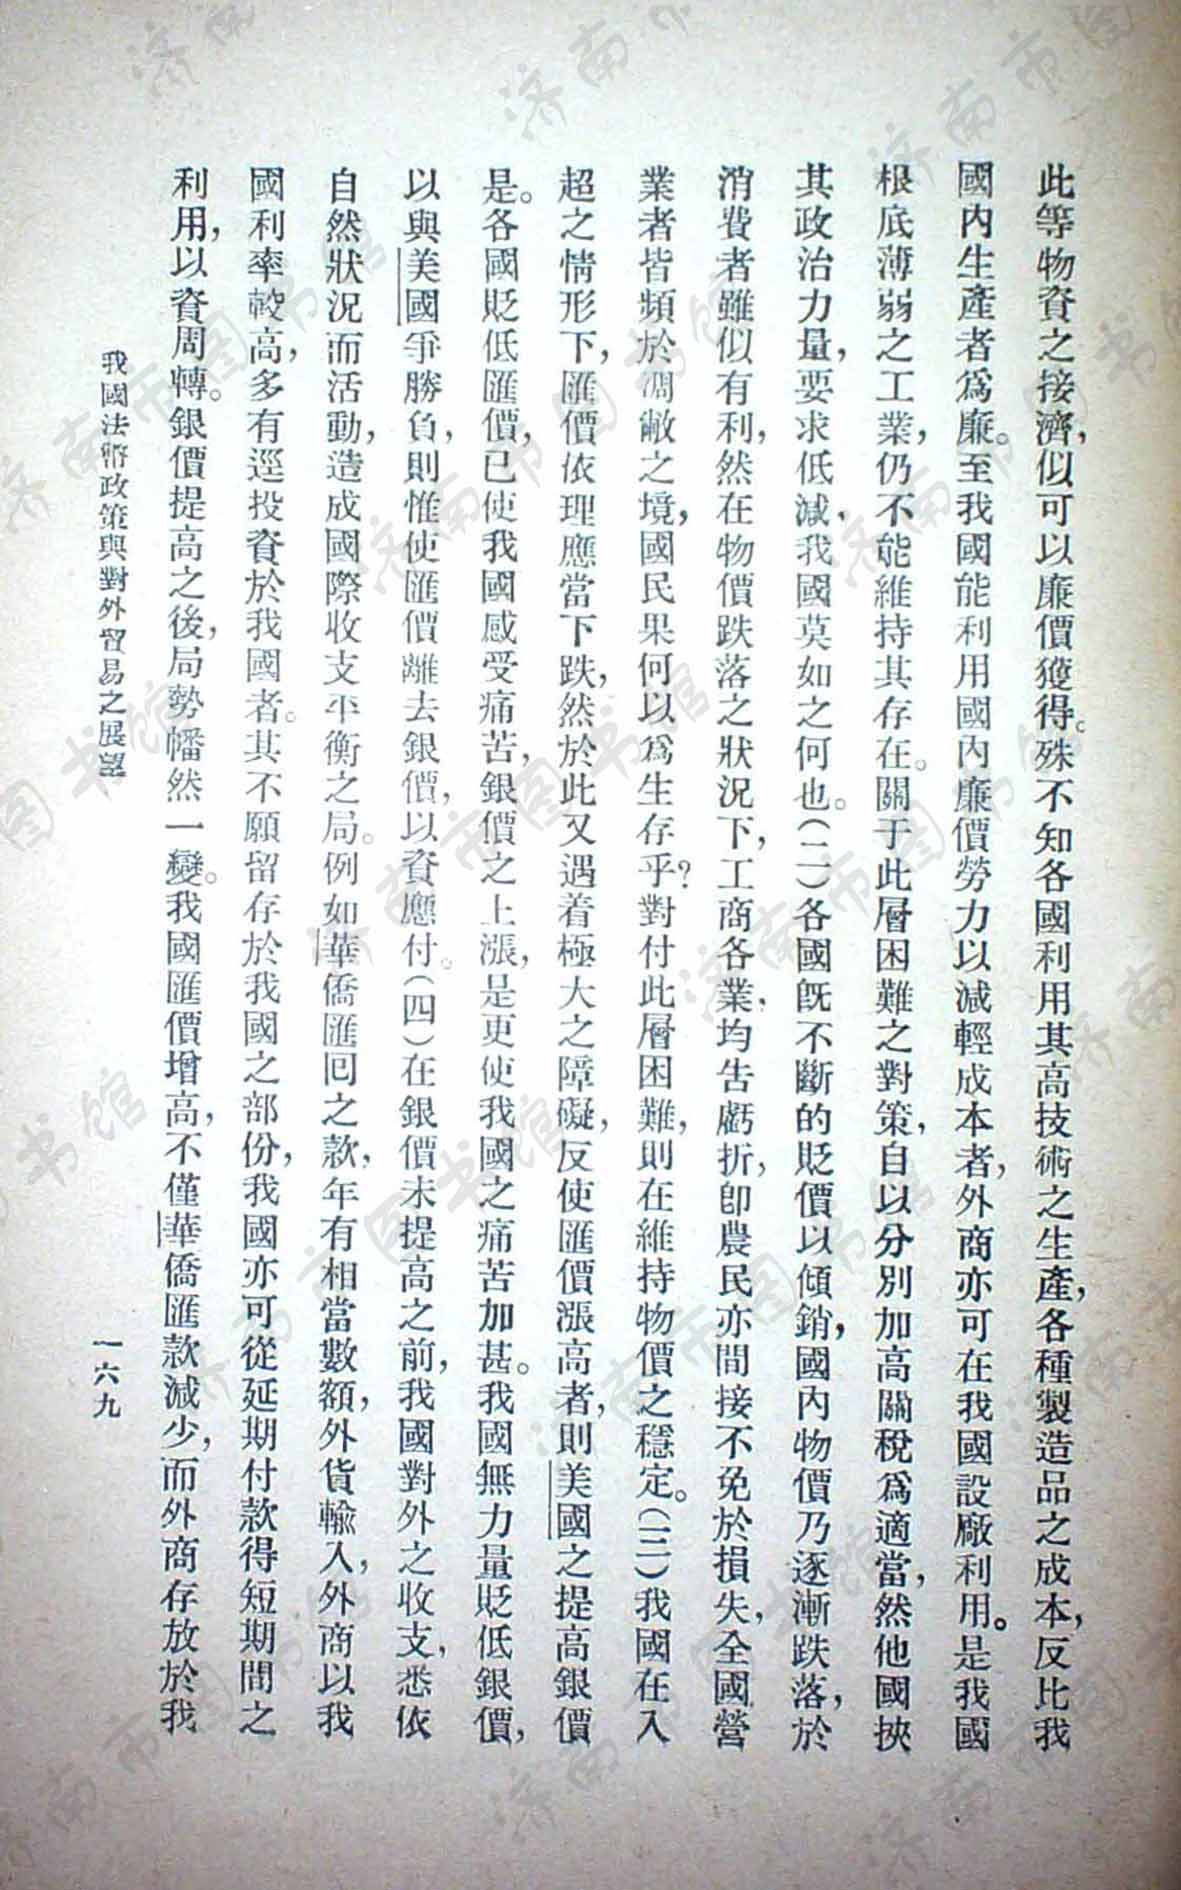 此等物資之接濟，似可以廉價獲得。殊不知各國利用其高技術之生產，各種製造品之成本，反比我
國內生產者爲廉。至我國能利用國內廉價勞力以減輕成本者，外商亦可在我國設廠利用。是我國
根底薄弱之工業，仍不能維持其存在。關于此層困難之對策，自以分別加高關稅爲適當，然他國挾
其政治力量，要求低減，我國莫如之何也。（二）各國旣不斷的貶價以傾銷，國內物價乃逐漸跌落，於
消費者雖似有利，然在物價跌落之狀況下，工商各業，均告虧折，卽農民亦間接不免於損失，全國營
業者皆瀕於凋敝之境，國民果何以爲生存乎？對付此層困難，則在維持物價之穩定。（三）我國在入
超之情形下，匯價依理應當下跌，然於此又遇着極大之障礙，反使匯價漲高者，則美國之提高銀價
是。各國貶低匯價，已使我國感受痛苦，銀價之上漲，是更使我國之痛苦加甚。我國無力量貶低銀價，
以與美國爭勝負，則惟使匯價離去銀價，以資應付。（四）在銀價未提高之前，我國對外之收支，悉依
自然狀況而活動，造成國際收支平衡之局。例如華僑匯囘之款，年有相當數額，外貨輸入，外商以我
國利率較高，多有逕投資於我國者。其不願留存於我國之部份，我國亦可從延期付款得短期間之
利用，以資周轉。銀價提高之後，局勢幡然一變。我國匯價增高，不僅華僑匯款減少，而外商存放於我
我國法幣政策與對外貿易之展望
一六九
济南市图书馆
济南市图书馆
济南市图书馆
济南市图书馆